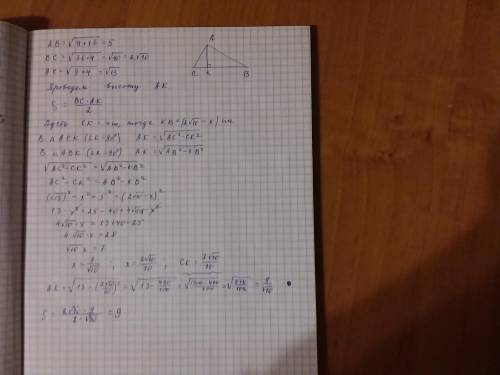 AB = √9+16 = 5
BC = √36+4 = √40 = 2√10
AC = √9+4 = √13
A
C K B
Проведем высоту AK
S = BC·AK / 2
Пусть CK = x см, тогда KB = (2√10 - x) см.
В △ ACK (∠K=90°) AK = √AC²-CK²
В △ ABK (∠K=90°) AK = √AB²-KB²
√AC²-CK² = √AB²-KB²
AC²-CK² = AB²-KB²
(√13)² - x² = 5² - (2√10 - x)²
13 - x² = 25 - 40 + 4√10x - x²
4√10·x = 13+40-25
4√10·x = 28
√10x = 7
x = 7/√10 , x = 7√10/10 , CK = 7√10/10
AK = √13 - (7√10/10)² = √13 - 490/100 = √1300-490/100 = √810/100 = 9/√10
S = 2√10·9 / 2·√10 = 9